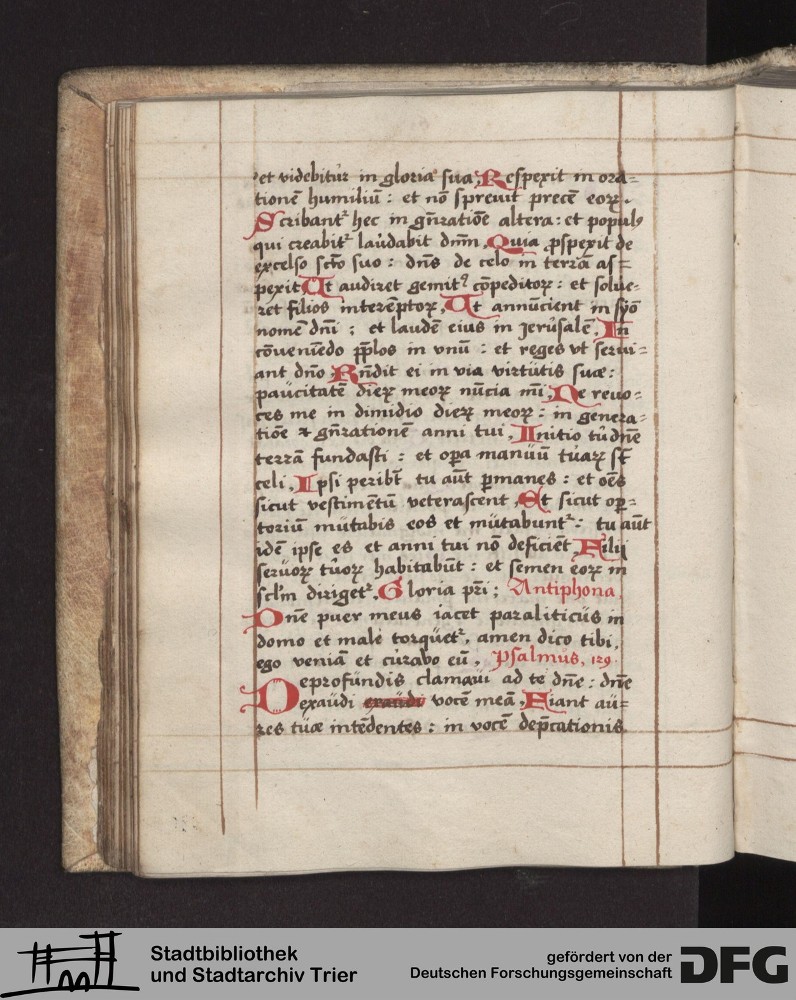 et videbitur in gloria sua, Respexit in ora=
tionē humiliū : et nō sprevit precē eoꝝ.
Scribant² hec in gn̄ratiōe altera : et populꝰ
qui creabit² laudabit dnm̄, Quia ꝓspexit de
excelso sct̄o suo : dn̄s de celo in terrā as=
pexit Ut audiret gemitꝰ cōpeditoꝝ : et solue=
ret filios interēptoꝝ, Ut annūcient in syō
nomē dn̄i : et laudē eius in Jerusalē, In
cōveniēdo pp̄los in vnū : et reges vt servi=
ant dn̄o, Rn̄dit ei in via virtutis suæ :
paucitatē dieꝝ meoꝝ nūcia m̄i, Ne revo=
ces me in dimidio dieꝝ meoꝝ : in genera=
tiōe ⁊ gn̄rationē anni tui, Initio tu dn̄e
terrā fundasti : et oꝑa manuū tuaꝝ st̄
celi, Ipsi peribt̄ tu aūt ꝑmanes : et oēs
sicut vestimētū veterascent, Et sicut oꝑ=
torium mutabis eos et mutabunt² : tu aūt
idē ipse es et anni tui nō deficiēt, Filij
servoꝝ tuoꝝ habitabūt : et semen eoꝝ in
scl̄m diriget², Gloria pr̄i ; Antiphona
Dn̄e puer meus iacet paraliticus in
domo et male torquet², amen dico tibi,
ego veniā et curabo eū, Psalmus, 129.
De profundis clamavi ad te dn̄e : dn̄e
exaudi exaudi vocē meā, Fiant au=
res tuæ intēdentes : in vocē dep̄cationis
Stadtbibliothek
und Stadtarchiv Trier
gefördert von der
Deutschen Forschungsgemeinschaft
DFG